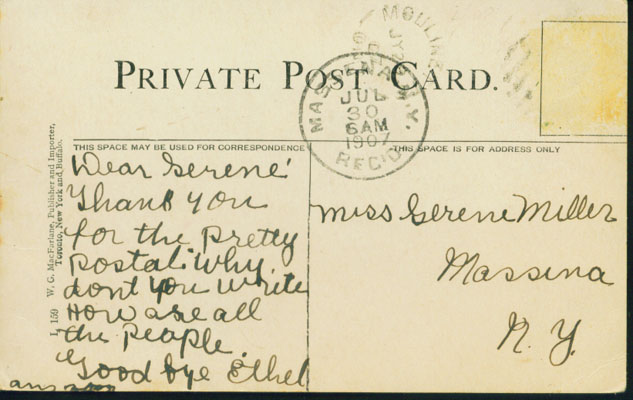 PRIVATE POST CARD.
MASSENA, N.Y.
JUL
30
6AM
1907
REC'D.
THIS SPACE MAY BE USED FOR CORRESPONDENCE
THIS SPACE IS FOR ADDRESS ONLY
W. G. MacFarlane, Publisher and Importer,
Toronto, New York and Buffalo.
L 159
Dear Gerene'
Thank you
for the pretty
postal. why
dont you write
How are all
the people.
Good bye Ethel
ans
Miss Gerene Miller
Massina
N. Y.